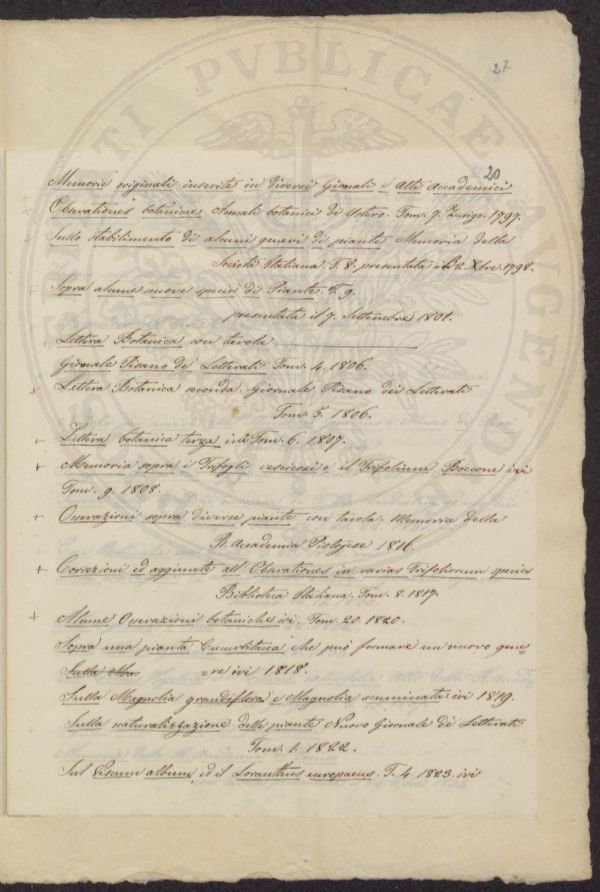 27
20
Memorie originali inserite in diversi Giornali e Atti Accademici
Observationes botanicae Annali botanici di Ustero. Tom. 7. Zurigo. 1797.
Sullo stabilimento di alcuni generi di piante Memoria della
Società Italiana. T. 8. presentata il 2. Xbre. 1798.
Sopra alcune nuove specie di Piante. T. 9.
presentata il 7. Settembre 1801.
+ Lettera Botanica con tavola
Giornale Pisano di Letterati Tom. 4. 1806.
Lettera Botanica seconda. Giornale Pisano dei Letterati
Tom. 5. 1806.
+ Lettera botanica terza ivi Tom. 6. 1807.
+ Memoria sopra i Trifogli vescicosi e il Trifolium Boccone ivi
Tom. 9. 1808.
+ Osservazioni sopra diverse piante con tavola. Memoria della
R. Accademia Pistojese 1816.
+ Correzioni ed aggiunte all' Observationes in varias Trifoliorum species
Biblioteca Italiana. Tom. 8. 1817.
+ Alcune Osservazioni botaniche ivi. Tom. 20. 1820.
Sopra una pianta Cucurbitacea che può formare un nuovo gene
=re ivi 1818.
Sulla Magnolia grandiflora e Magnolia acuminata ivi 1819.
Sulla naturalizzazione delle piante Nuovo Giornale di Letterati
Tom. 1. 1822.
Sul Viscum album, ed il Loranthus europaeus. T. 4. 1823. ivi